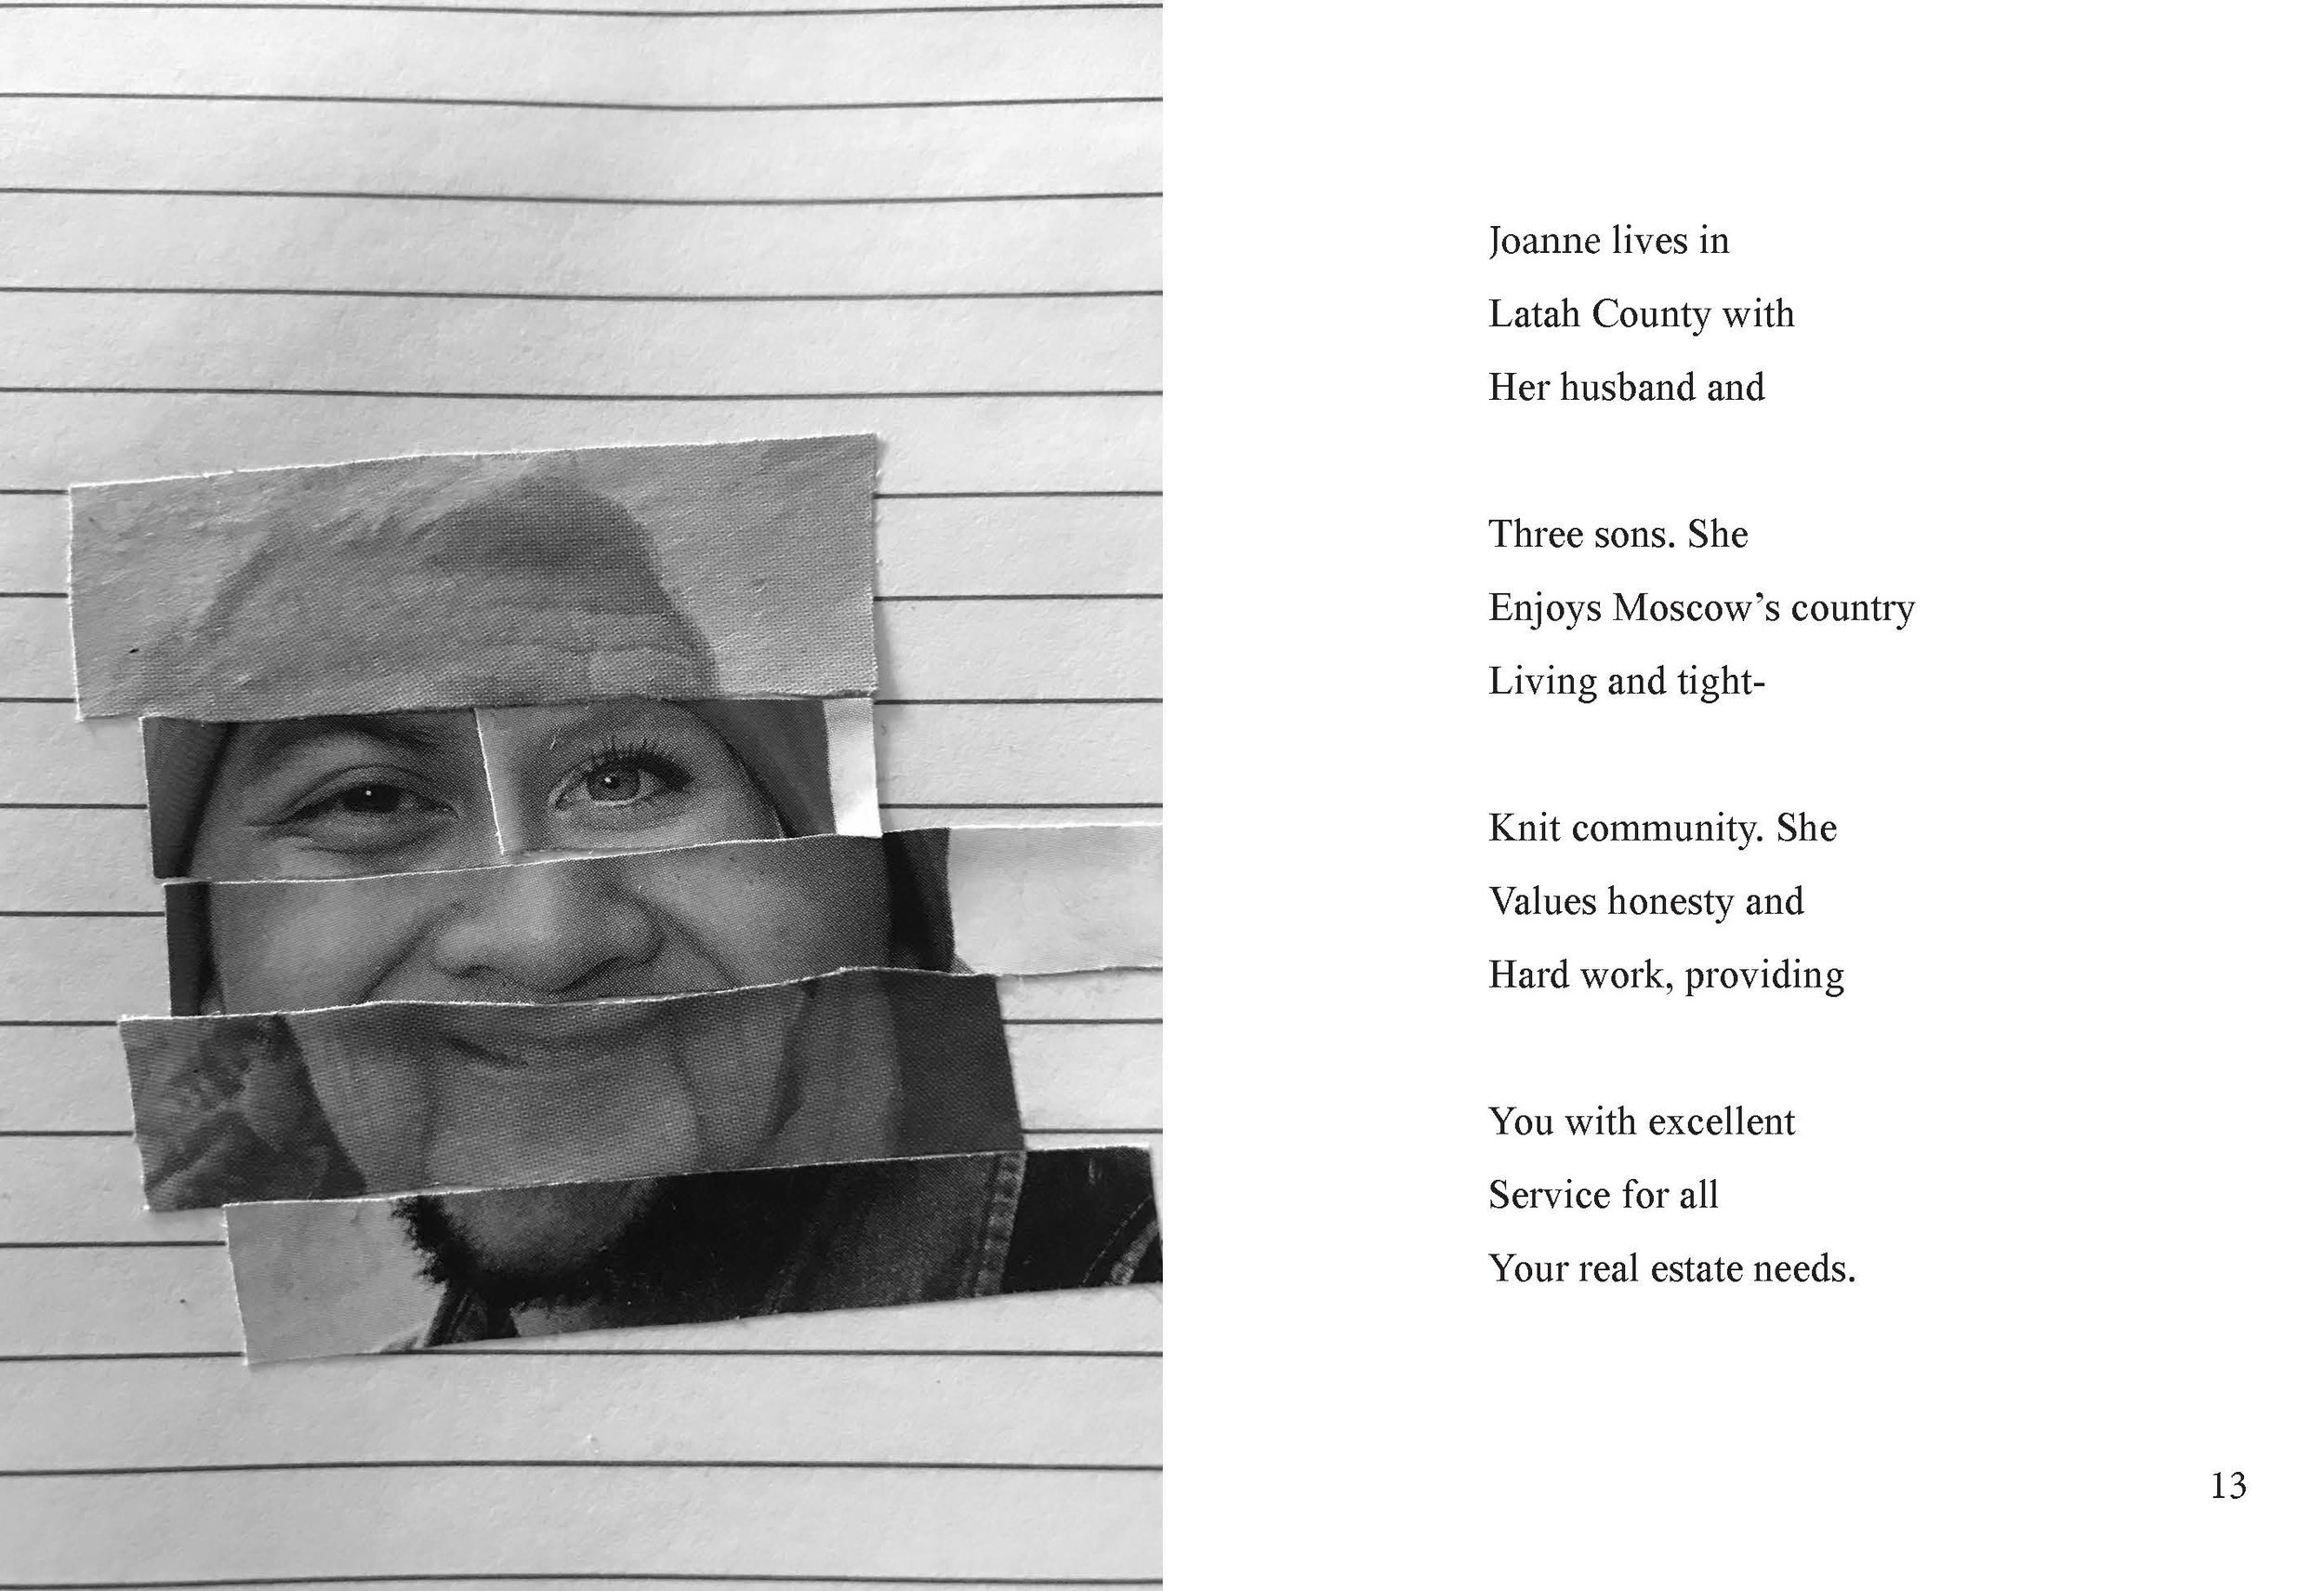 Joanne lives in
Latah County with
Her husband and
Three sons. She
Enjoys Moscow’s country
Living and tight-
Knit community. She
Values honesty and
Hard work, providing
You with excellent
Service for all
Your real estate needs.
13